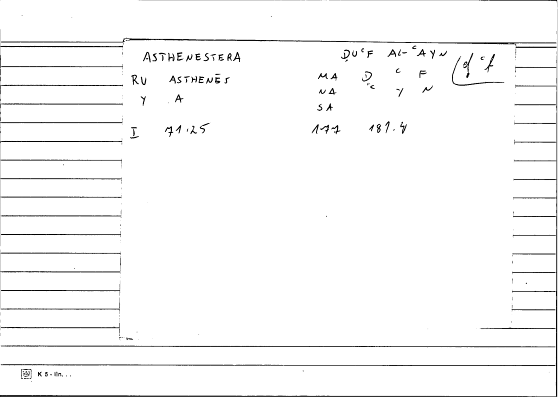 ASTHENESTERA ḌUᶜF AL-ᶜAYN
RU ASTHENĒS MA Ḍ ᶜ F
NA ᶜ Y N
Y A
SA
I 71.25 177 181.4
K 5 - lin. . .